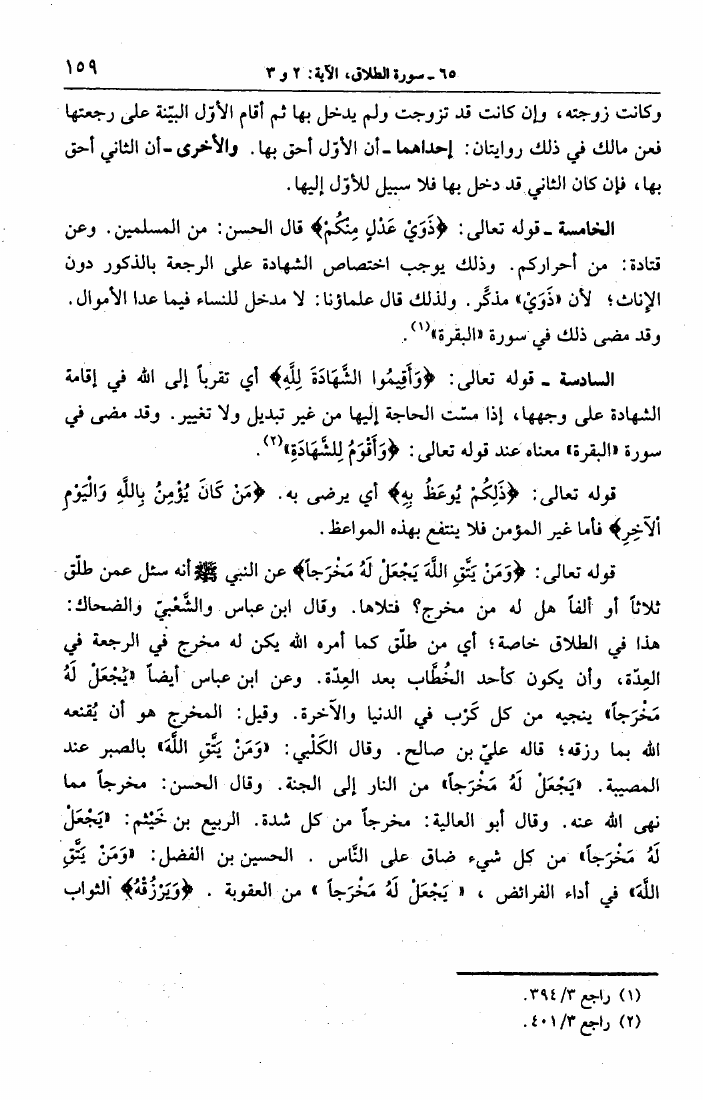 ٦٥ - سورة الطلاق، الآية: ٢ و ٣ ١٥٩
وكانت زوجته، وإن كانت قد تزوجت ولم يدخل بها ثم أقام الأوّل البيّنة على رجعتها
فعن مالك في ذلك روايتان: إحداهما - أن الأوّل أحق بها. والأخرى - أن الثاني أحق
بها، فإن كان الثاني قد دخل بها فلا سبيل للأوّل إليها.
الخامسة - قوله تعالى: ﴿ذَوَيْ عَدْلٍ مِنْكُمْ﴾ قال الحسن: من المسلمين. وعن
قتادة: من أحراركم. وذلك يوجب اختصاص الشهادة على الرجعة بالذكور دون
الإناث؛ لأن «ذَوَيْ» مذكَّر. ولذلك قال علماؤنا: لا مدخل للنساء فيما عدا الأموال.
وقد مضى ذلك في سورة «البقرة»(١).
السادسة - قوله تعالى: ﴿وَأَقِيمُوا الشَّهَادَةَ لِلَّهِ﴾ أي تقرباً إلى الله في إقامة
الشهادة على وجهها، إذا مسّت الحاجة إليها من غير تبديل ولا تغيير. وقد مضى في
سورة «البقرة» معناه عند قوله تعالى: ﴿وَأَقْوَمُ لِلشَّهَادَةِ﴾(٢).
قوله تعالى: ﴿ذَلِكُمْ يُوعَظُ بِهِ﴾ أي يرضى به. ﴿مَنْ كَانَ يُؤْمِنُ بِاللَّهِ وَالْيَوْمِ
الْآخِرِ﴾ فأما غير المؤمن فلا ينتفع بهذه المواعظ.
قوله تعالى: ﴿وَمَنْ يَتَّقِ اللَّهَ يَجْعَلْ لَهُ مَخْرَجاً﴾ عن النبي ﷺ أنه سئل عمن طلّق
ثلاثاً أو ألفاً هل له من مخرج؟ فتلاها. وقال ابن عباس والشَّعْبيّ والضحاك:
هذا في الطلاق خاصة؛ أي من طلّق كما أمره الله يكن له مخرج في الرجعة في
العِدّة، وأن يكون كأحد الخُطَّاب بعد العِدّة. وعن ابن عباس أيضاً «يَجْعَلْ لَهُ
مَخْرَجاً» ينجيه من كل كَرْب في الدنيا والآخرة. وقيل: المخرج هو أن يُقنعه
الله بما رزقه؛ قاله عليّ بن صالح. وقال الكَلْبي: «وَمَنْ يَتَّقِ اللَّهَ» بالصبر عند
المصيبة. «يَجْعَلْ لَهُ مَخْرَجاً» من النار إلى الجنة. وقال الحسن: مخرجاً مما
نهى الله عنه. وقال أبو العالية: مخرجاً من كل شدة. الربيع بن خَيْثم: «يَجْعَلْ
لَهُ مَخْرَجاً» من كل شيء ضاق على النَّاس. الحسين بن الفضل: «وَمَنْ يَتَّقِ
اللَّهَ» في أداء الفرائض، «يَجْعَلْ لَهُ مَخْرَجاً» من العقوبة. ﴿وَيَرْزُقْهُ﴾ الثواب
(١) راجع ٣/ ٣٩٤.
(٢) راجع ٣/ ٤٠١.